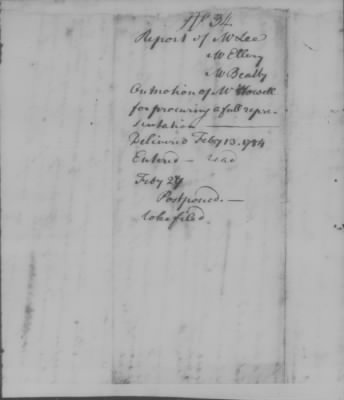 No 34
Report of Mr Lee
Mr Ellery
Mr Beatty
On motion of Mr Howell
for procuring a full repre-
sentation
Delivered Feby 13. 1784
Entered - read
Feby 24
Postponed. -
to be filed.